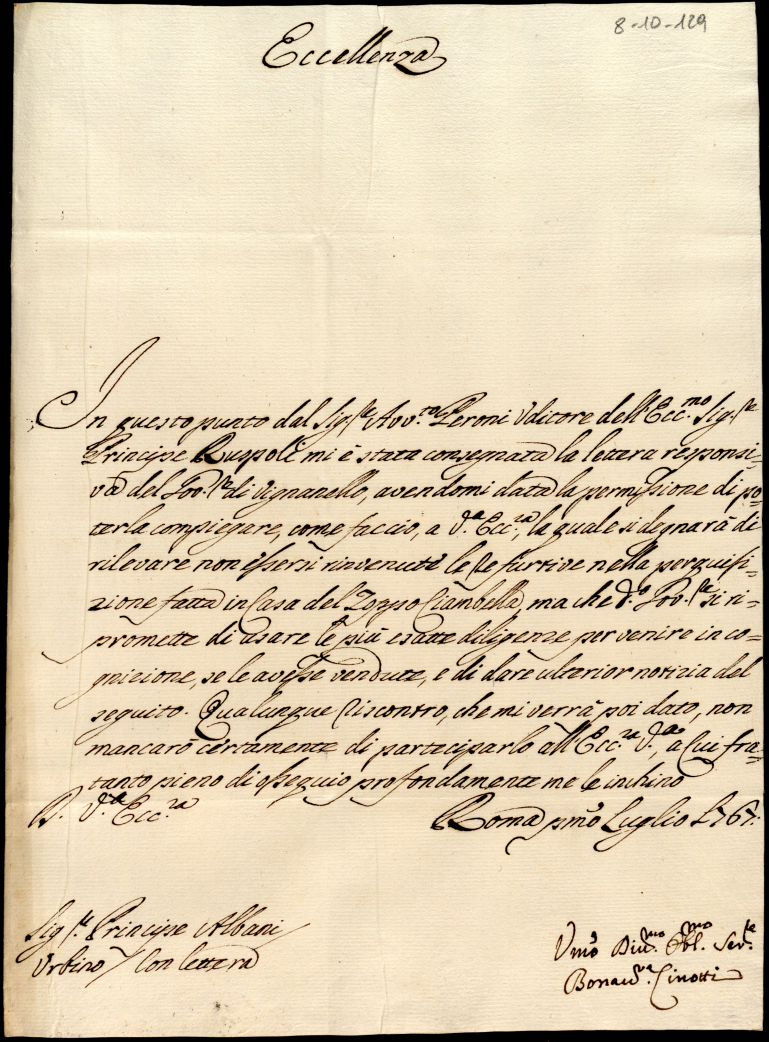 8-10-129
Eccellenza
In questo punto dal Sig.re Avv.to Peroni Uditore dell'Ecc.mo Sig.re
Principe Ruspoli mi è stata consegnata la lettera responsi=
va del Gov.re di Vignanello, avendomi data la permissione di po=
terla compiegare, come faccio, a V.a Ecc.za, la quale si degnarà di
rilevare non essersi rinvenute le Re furtive nella perquisi=
zione fatta in Casa del Zoppo Ciambella, ma che d.o Gov.re si ri=
promette di usare le più esatte diligenze per venire in co=
gnizione, se le avesse vendute, e di dare ulterior notizia del
seguito. Qualunque riscontro, che mi verrà poi dato, non
mancarò certamente di parteciparlo all'Ecc.za V.a, a Cui fra=
tanto pieno di ossequio profondamente me le inchino
D. V.a Ecc.za
Roma pmo Luglio 1767.
Sig.re Principe Albani
Urbino / Con lettera
Vmo Div.mo Obl.mo Ser.re
Bonav.ra Cinotti